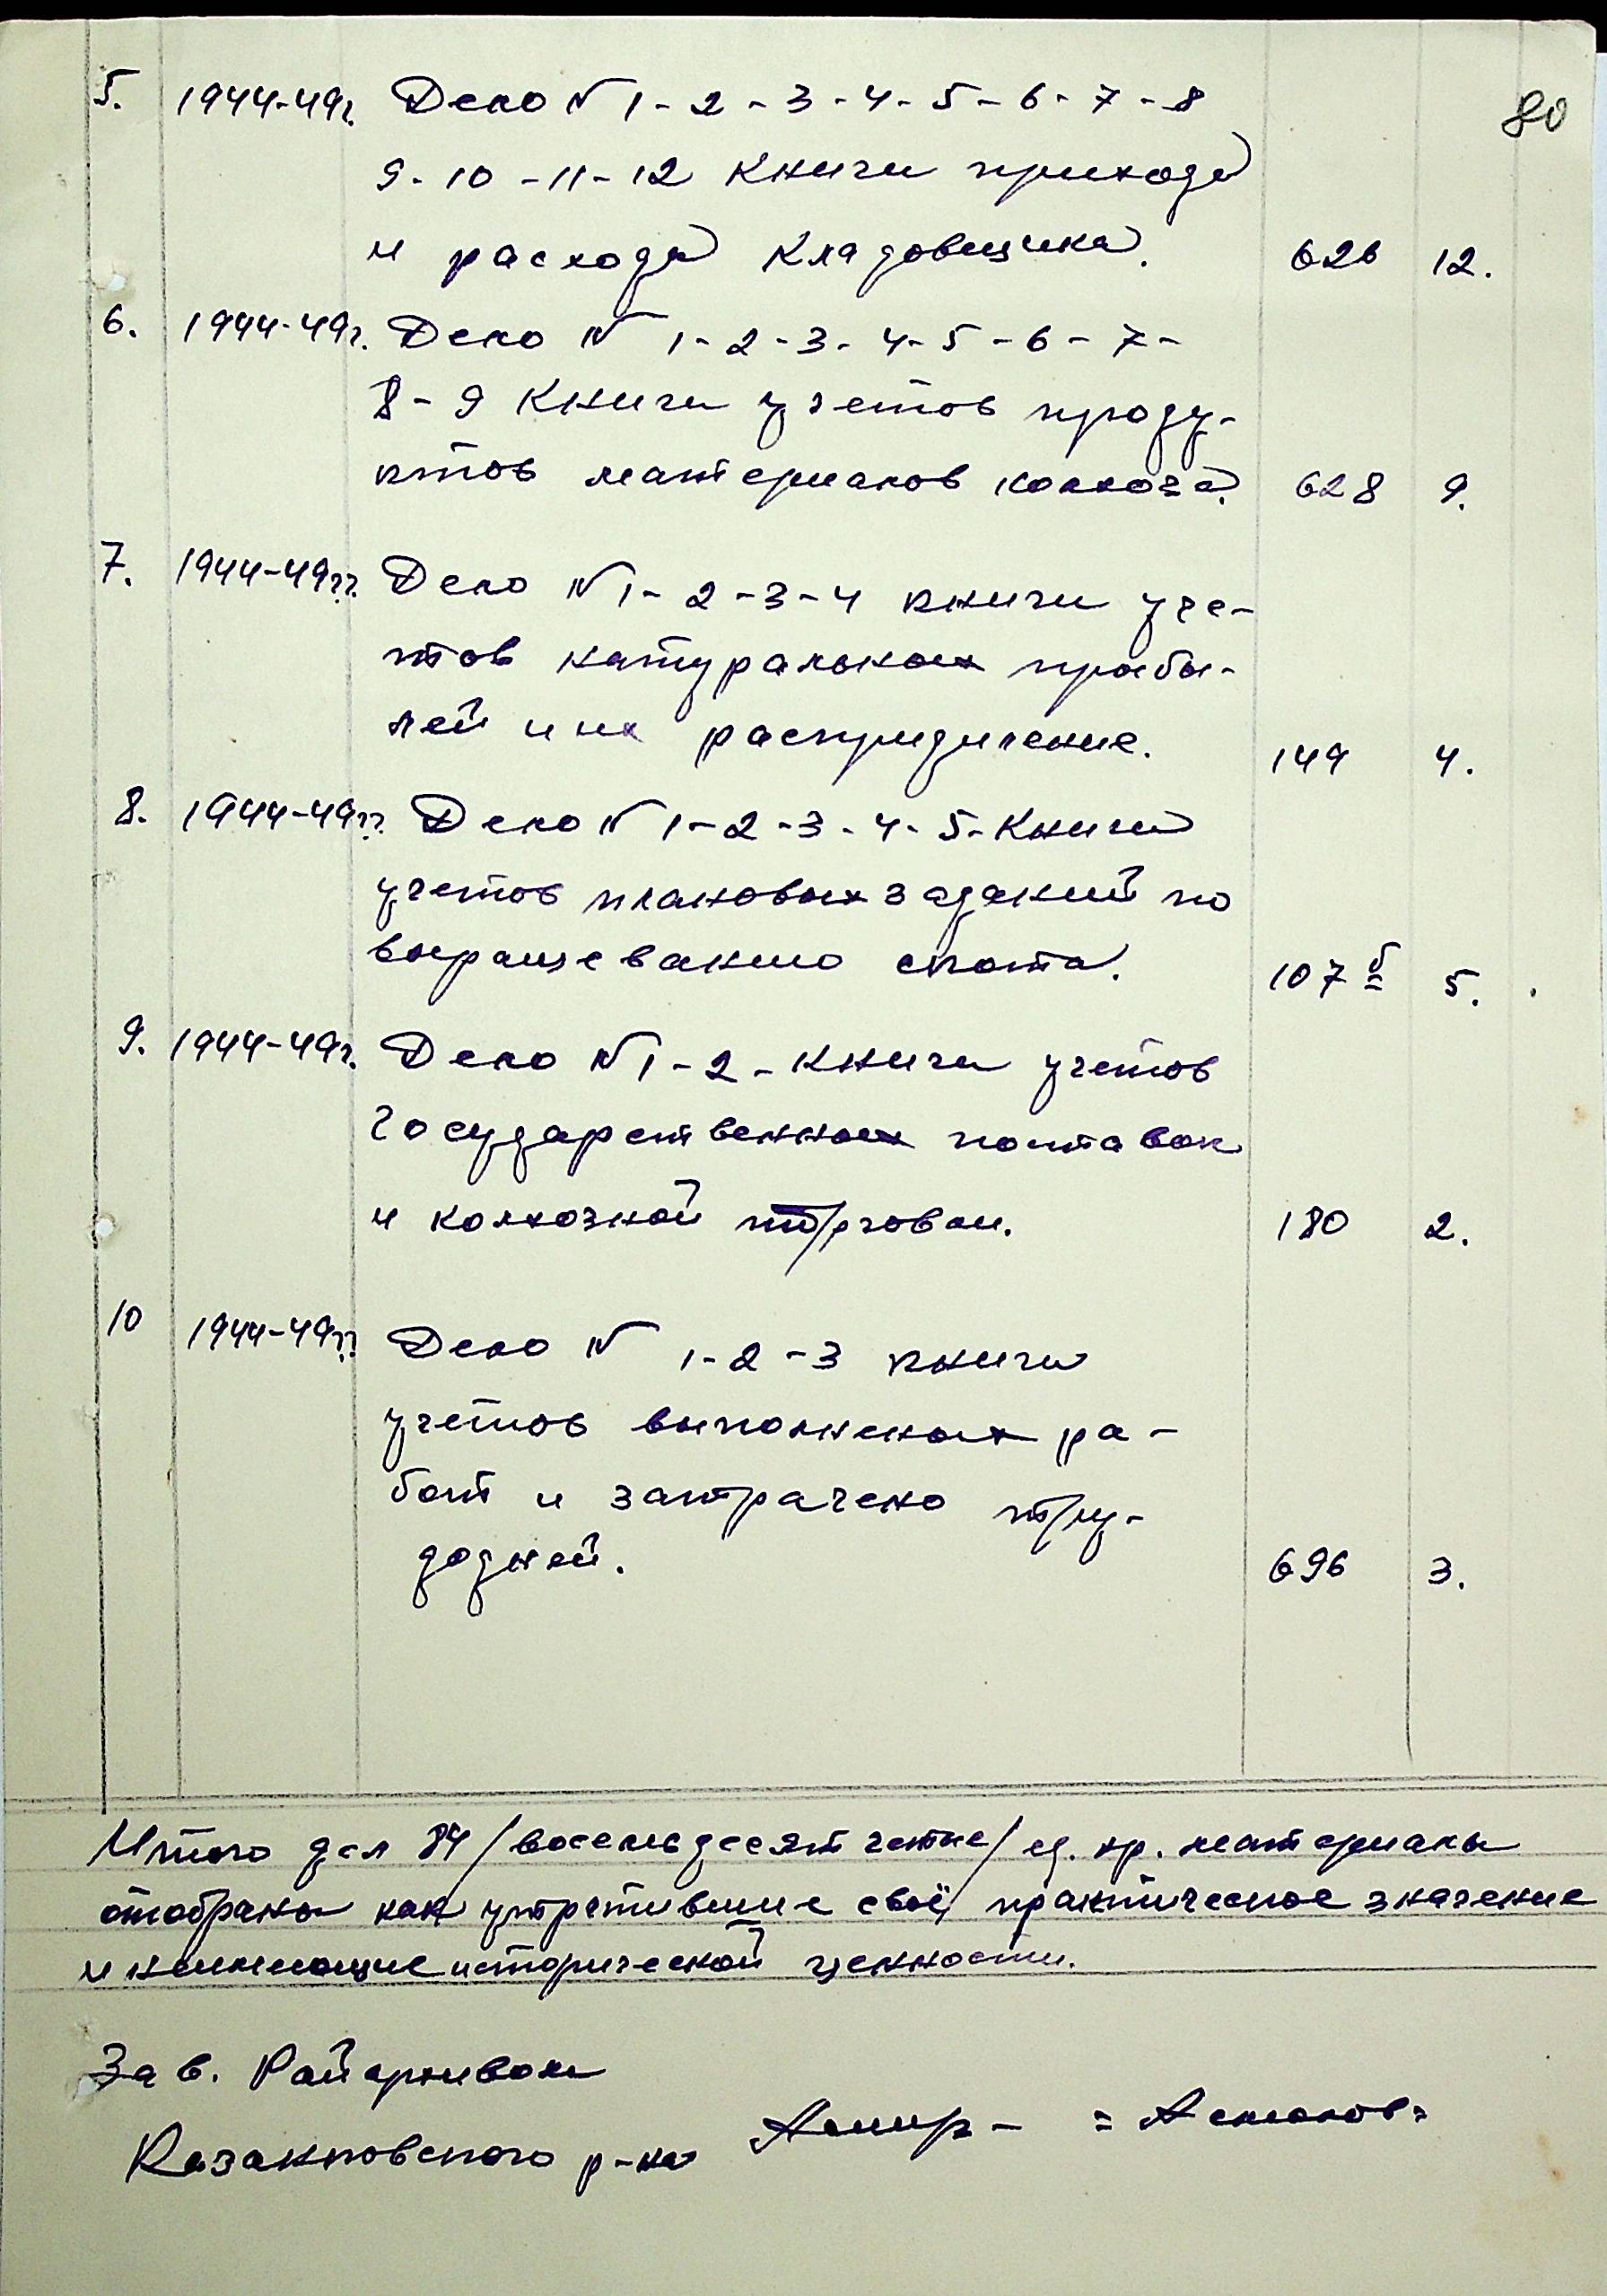 80
5. 1944-49г. Дело № 1-2-3-4-5-6-7-8
9-10-11-12 Книги прихода
и расхода Кладовщика. 626 12.
6. 1944-49г. Дело № 1-2-3-4-5-6-7-
8-9 Книги учетов проду-
ктов материалов колхоза. 628 9.
7. 1944-49гг. Дело № 1-2-3-4 книги уче-
тов натуральных прибы-
лей и их распридиление. 149 4.
8. 1944-49гг. Дело № 1-2-3-4-5-Книги
учетов плановых заданий по
выращеванию скота. 107 5.
9. 1944-49г. Дело № 1-2-книги учетов
государственных поставок
и колхозной торговли. 180 2.
10 1944-49гг Дело № 1-2-3 книги
учетов выполненых ра-
бот и затрачено тру-
додней. 696 3.
Итого дел 84/восемьдесят четые/ ед. хр. материалы
отобраны как утратившие своё практическое значение
и неимеющие исторической ценности.
Зав. Райархивом
Казанковского р-на